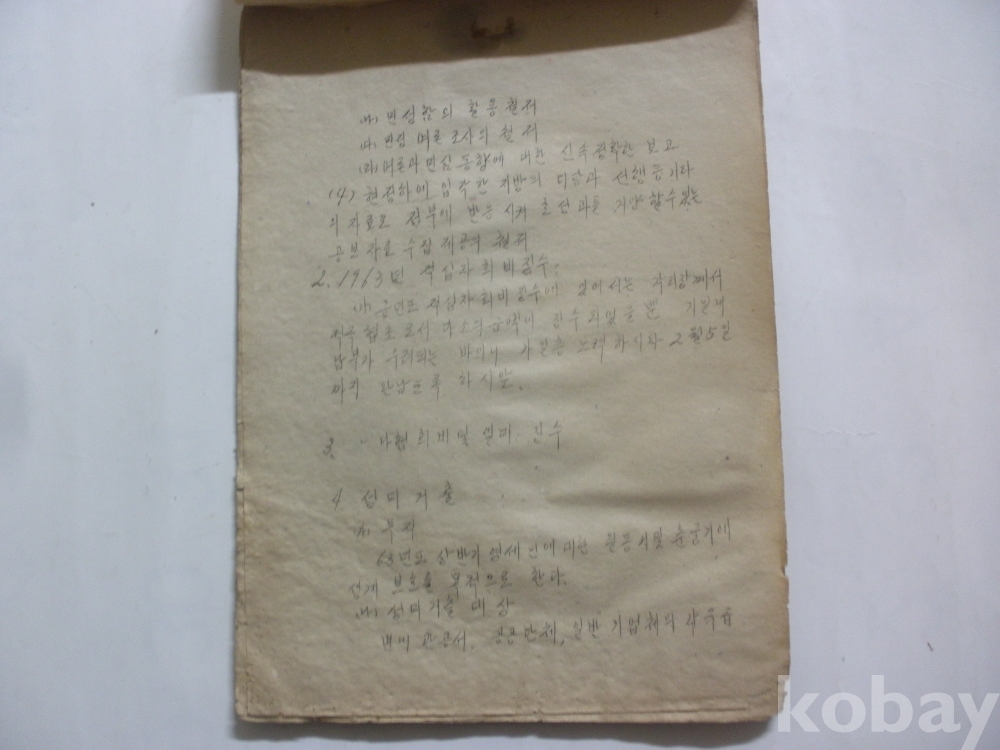 (나) 민성함의 활동 현저
(다) 민심 여론 조사의 철저
(라) 여론과 민심 동향에 대한 신속 정확한 보고
(4) 현정하에 입각한 지방의 미담과 선행 등 기타
의 자료로 정부에 반응 시켜 효과를 거양 할 수 있는
공보 자료 수집 제공의 철저
2. 1963년 적십자 회비 징수.
(가) 금년도 적십자 회비 징수에 있어서는 각 이장께서
적극 협조로서 다소의 금액이 징수 되었을 뿐 기일내
납부가 우려되는 바이니 가일층 노력 하시와 2월 5일
까지 완납토록 하시앞.
3. 회비 및 징수
4 성미거출
(가) 목적
63년도 상반기 영세민에 대한 월동기 및 춘궁기에
생계 보호를 목적으로 한다.
(나) 성미거출 대상
면내 관공서. 공공단체, 일반 기업체의
kobay